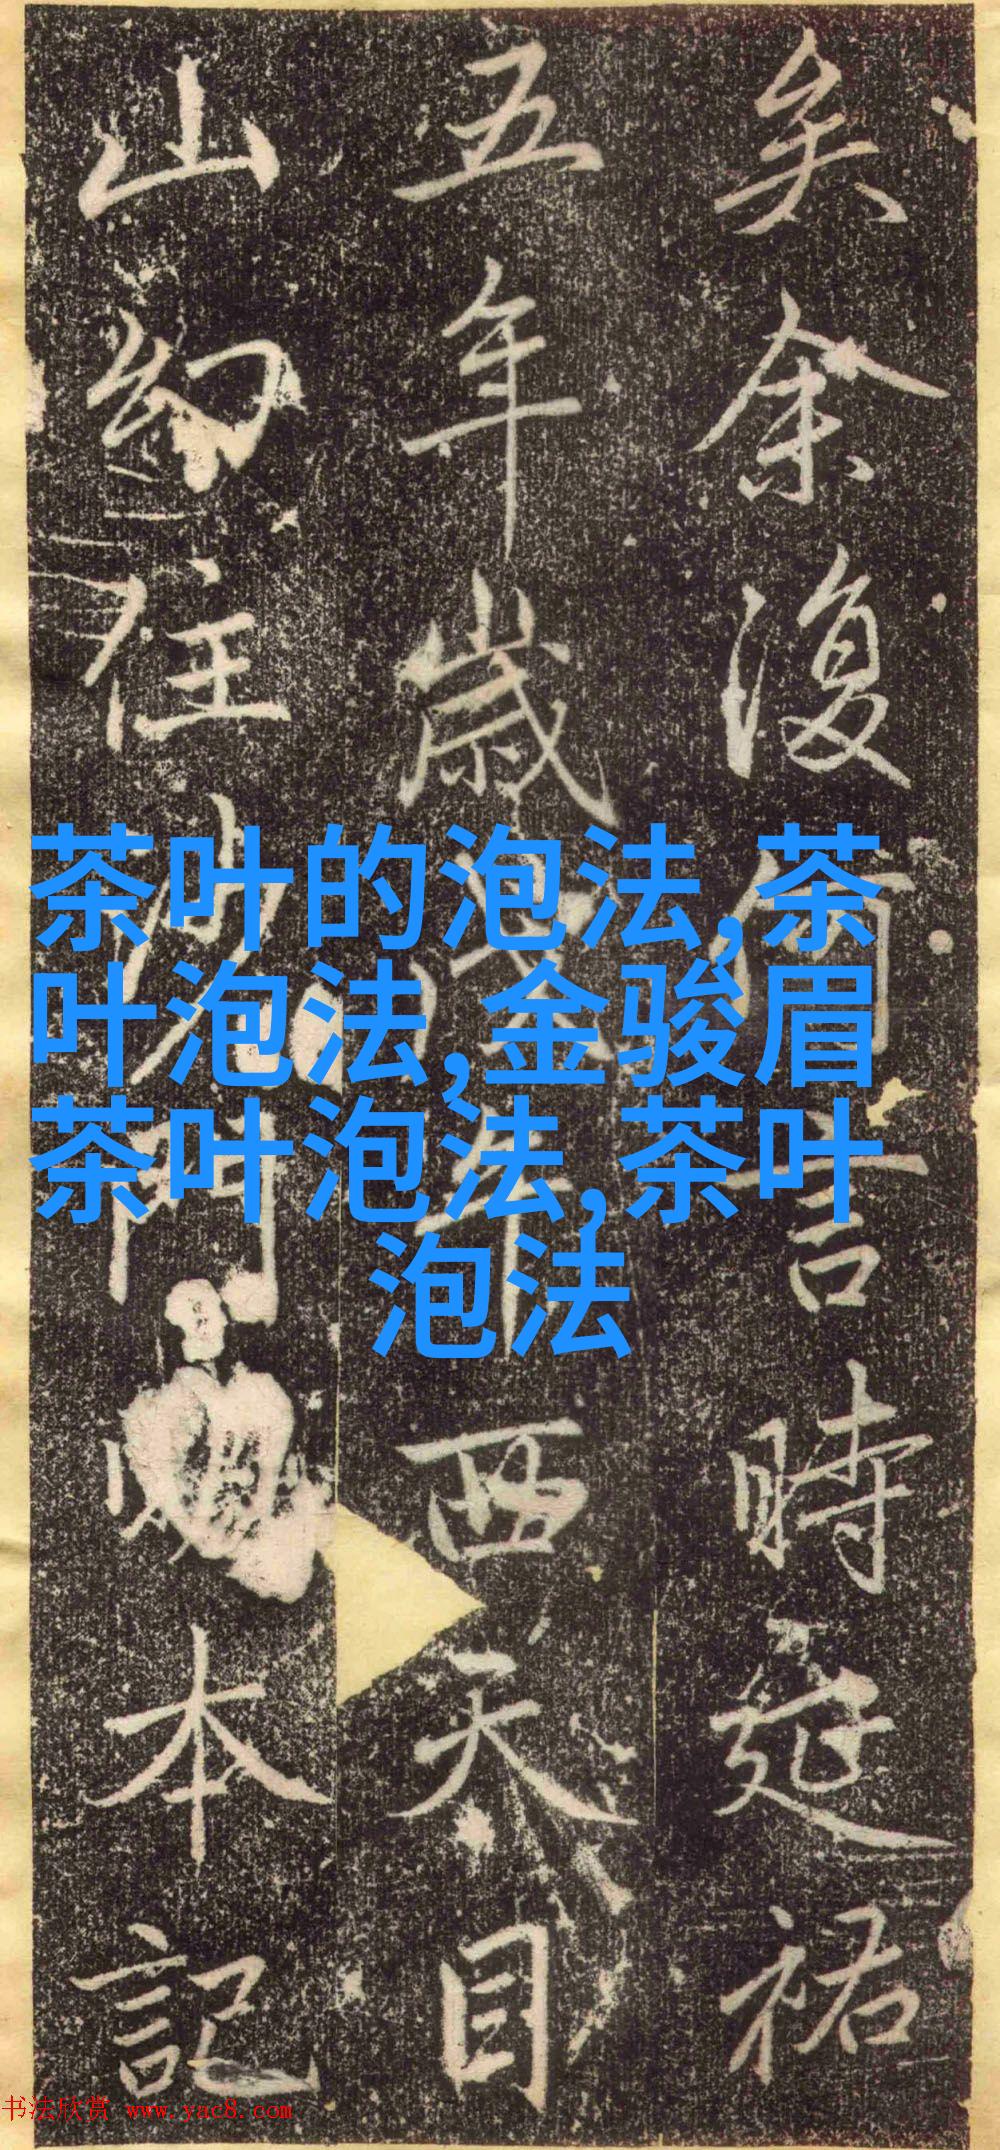 矣余復何言時延祐
五年歲戊午西天目
山幻住沙門明本記
茶叶的泡法,茶
叶泡法,金骏眉
茶叶泡法,茶叶
泡法
书法欣赏 www.yac8.com